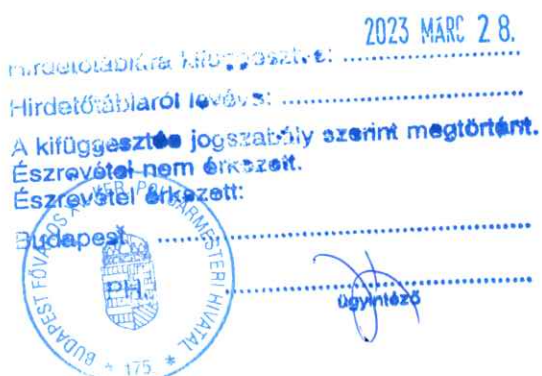 2023 MÁRC 28.
Hirdetőtáblára kifüggesztve: ........................
Hirdetőtábláról levéve: ........................
A kifüggesztés jogszabály szerint megtörtént.
Észrevétel nem érkezett.
Észrevétel érkezett:
Budapest, ........................
........................
ügyintéző
BUDAPEST FŐVÁROS KER. POLGÁRMESTERI HIVATAL
PH.
* 175 *